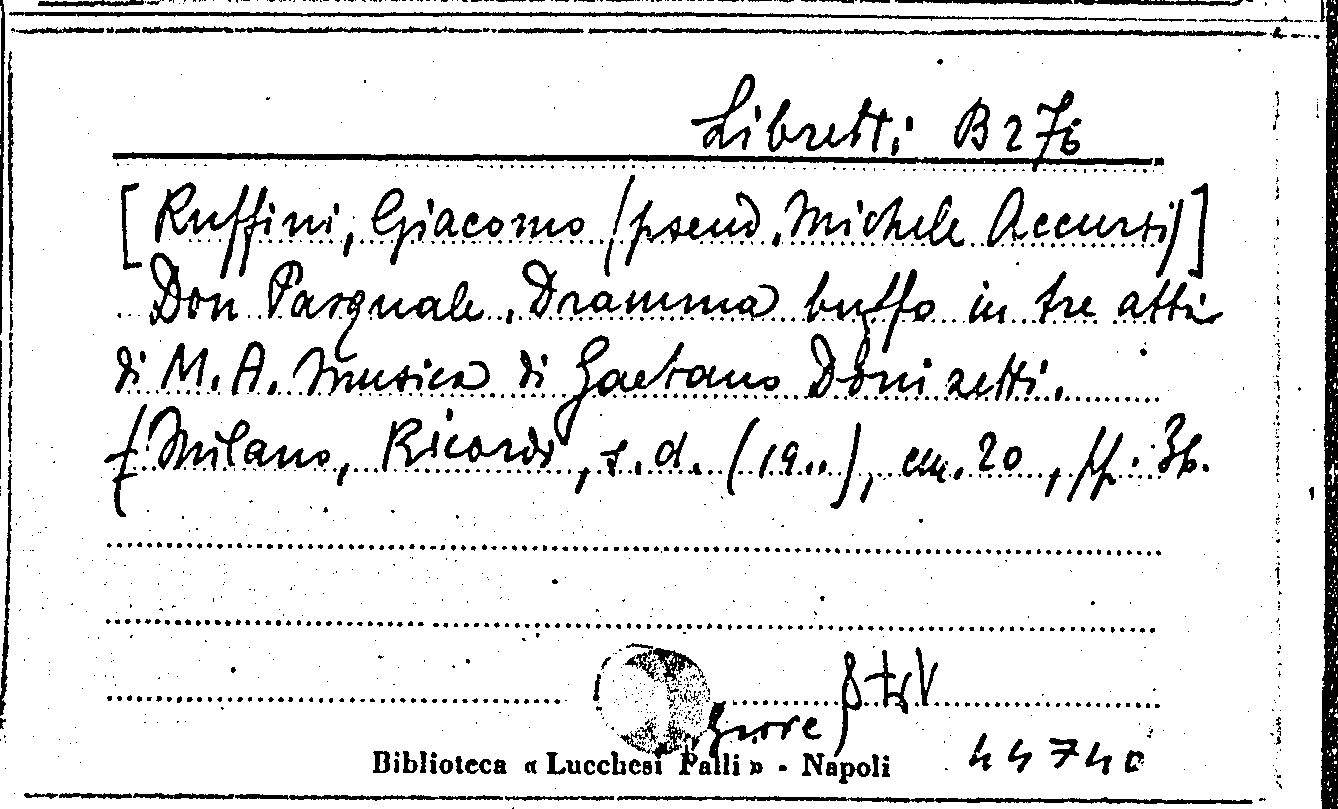 Libretti B 276
[Ruffini, Giacomo (pseud. Michele Accursi)]
Don Pasquale. Dramma buffo in tre atti
di M. A. Musica di Gaetano Donizetti.
Milano, Ricordi, s.d. (19..), cm. 20, pp. 36.
Biblioteca « Lucchesi Palli » - Napoli
44740